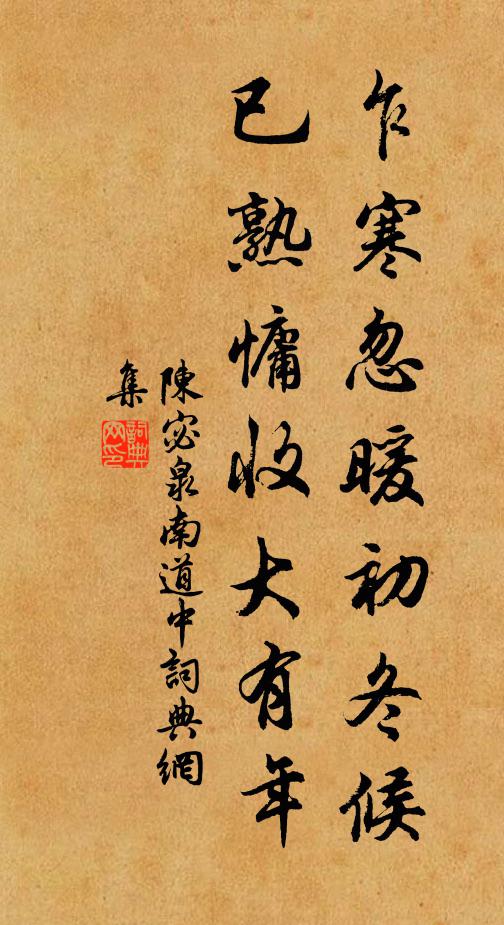 乍寒忽暖初冬候
已熟慵收大有年
陳宓泉南道中詞典網
集
詞典
网印